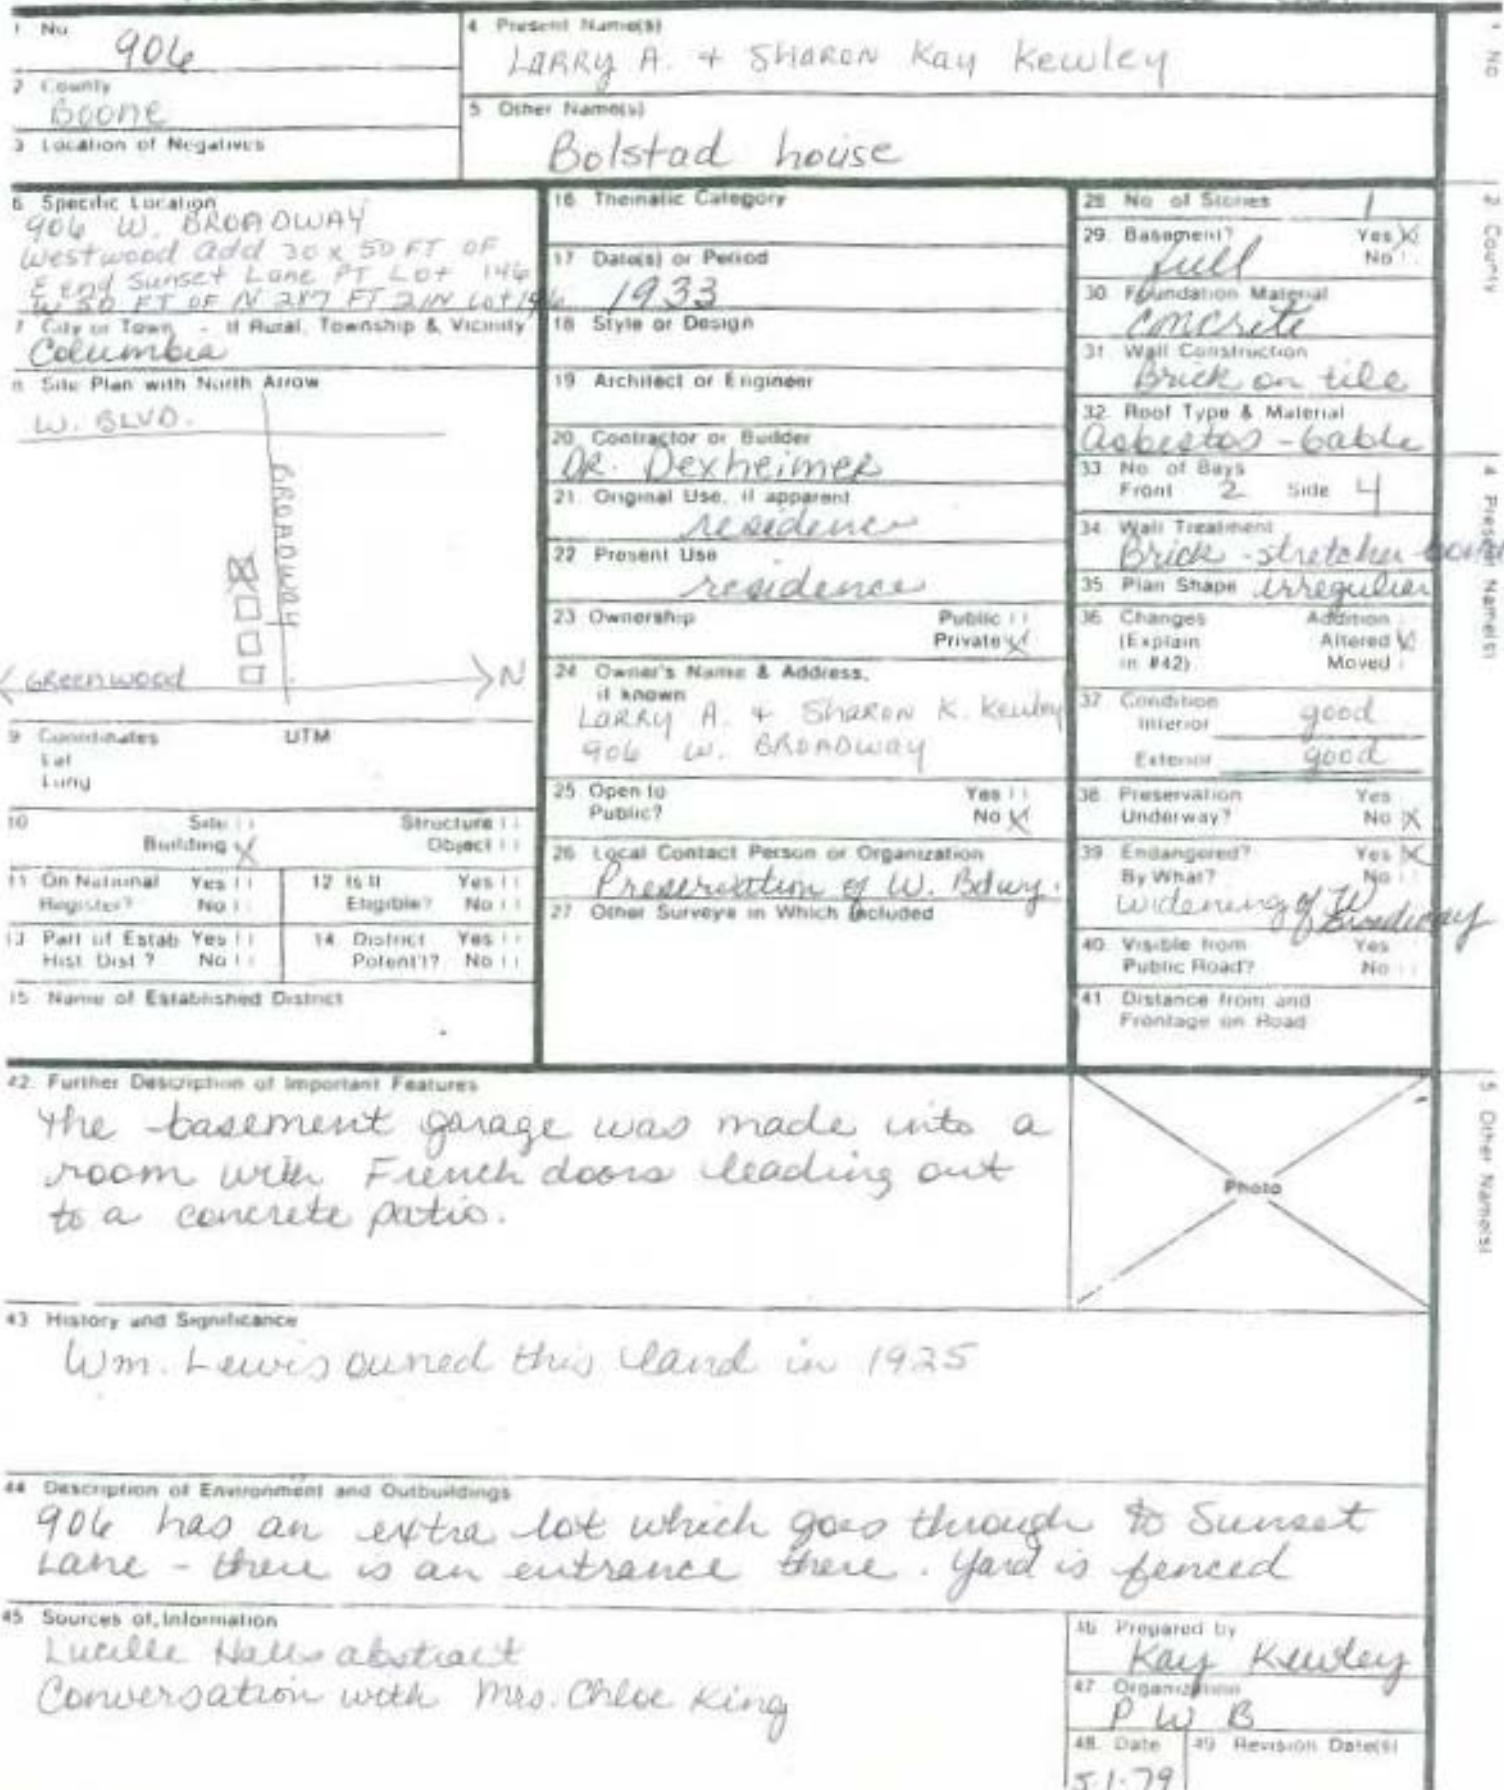 1 No.
906
4 Present Name(s)
LARRY A. + SHARON Kay Kewley
2 County
Boone
5 Other Name(s)
Bolstad house
3 Location of Negatives
6 Specific Location
906 W. BROADWAY
Westwood add 30 x 50 FT OF
E end Sunset Lane PT Lot 146
W 50 FT OF N 287 FT 2IN Lot 146
7 City or Town - If Rural, Township & Vicinity
Columbia
8 Site Plan with North Arrow
W. BLVD.
BROADWAY
GREENWOOD
N
9 Coordinates UTM
Lat
Long
10 Site Structure
Building X Object
11 On National Register? Yes No
12 Is It Eligible? Yes No
13 Part of Estab Hist. Dist.? Yes No
14 District Potent'l? Yes No
15 Name of Established District
16 Thematic Category
17 Date(s) or Period
1933
18 Style or Design
19 Architect or Engineer
20 Contractor or Builder
DR. Dexheimer
21 Original Use, if apparent
residence
22 Present Use
residence
23 Ownership Public
Private X
24 Owner's Name & Address,
if known
LARRY A. + SHARON K. Kewley
906 W. BROADWAY
25 Open to Yes
Public? No X
26 Local Contact Person or Organization
Preservation of W. Bdwy.
27 Other Surveys in Which Included
28 No. of Stories 1
29. Basement? Yes X
full No
30 Foundation Material
concrete
31 Wall Construction
Brick on tile
32. Roof Type & Material
asbestos - gable
33 No. of Bays
Front 2 Side 4
34 Wall Treatment
Brick - stretcher bond
35 Plan Shape irregular
36 Changes Addition
(Explain Altered X
in #42) Moved
37 Condition
Interior good
Exterior good
38 Preservation Yes
Underway? No X
39 Endangered? Yes X
By What? No
widening of W
Broadway
40. Visible from Yes
Public Road? No
41 Distance from and
Frontage on Road
42. Further Description of Important Features
The basement garage was made into a
room with French doors leading out
to a concrete patio.
Photo
43 History and Significance
Wm. Lewis owned this land in 1925
44 Description of Environment and Outbuildings
906 has an extra lot which goes through to Sunset
Lane - there is an entrance there. Yard is fenced
45 Sources of Information
Lucille Halls abstract
Conversation with Mrs. Chloe King
46 Prepared by
Kay Kewley
47 Organization
P W B
48. Date 49 Revision Date(s)
5-1-79
1 No
2 County
4 Present Name(s)
5 Other Name(s)